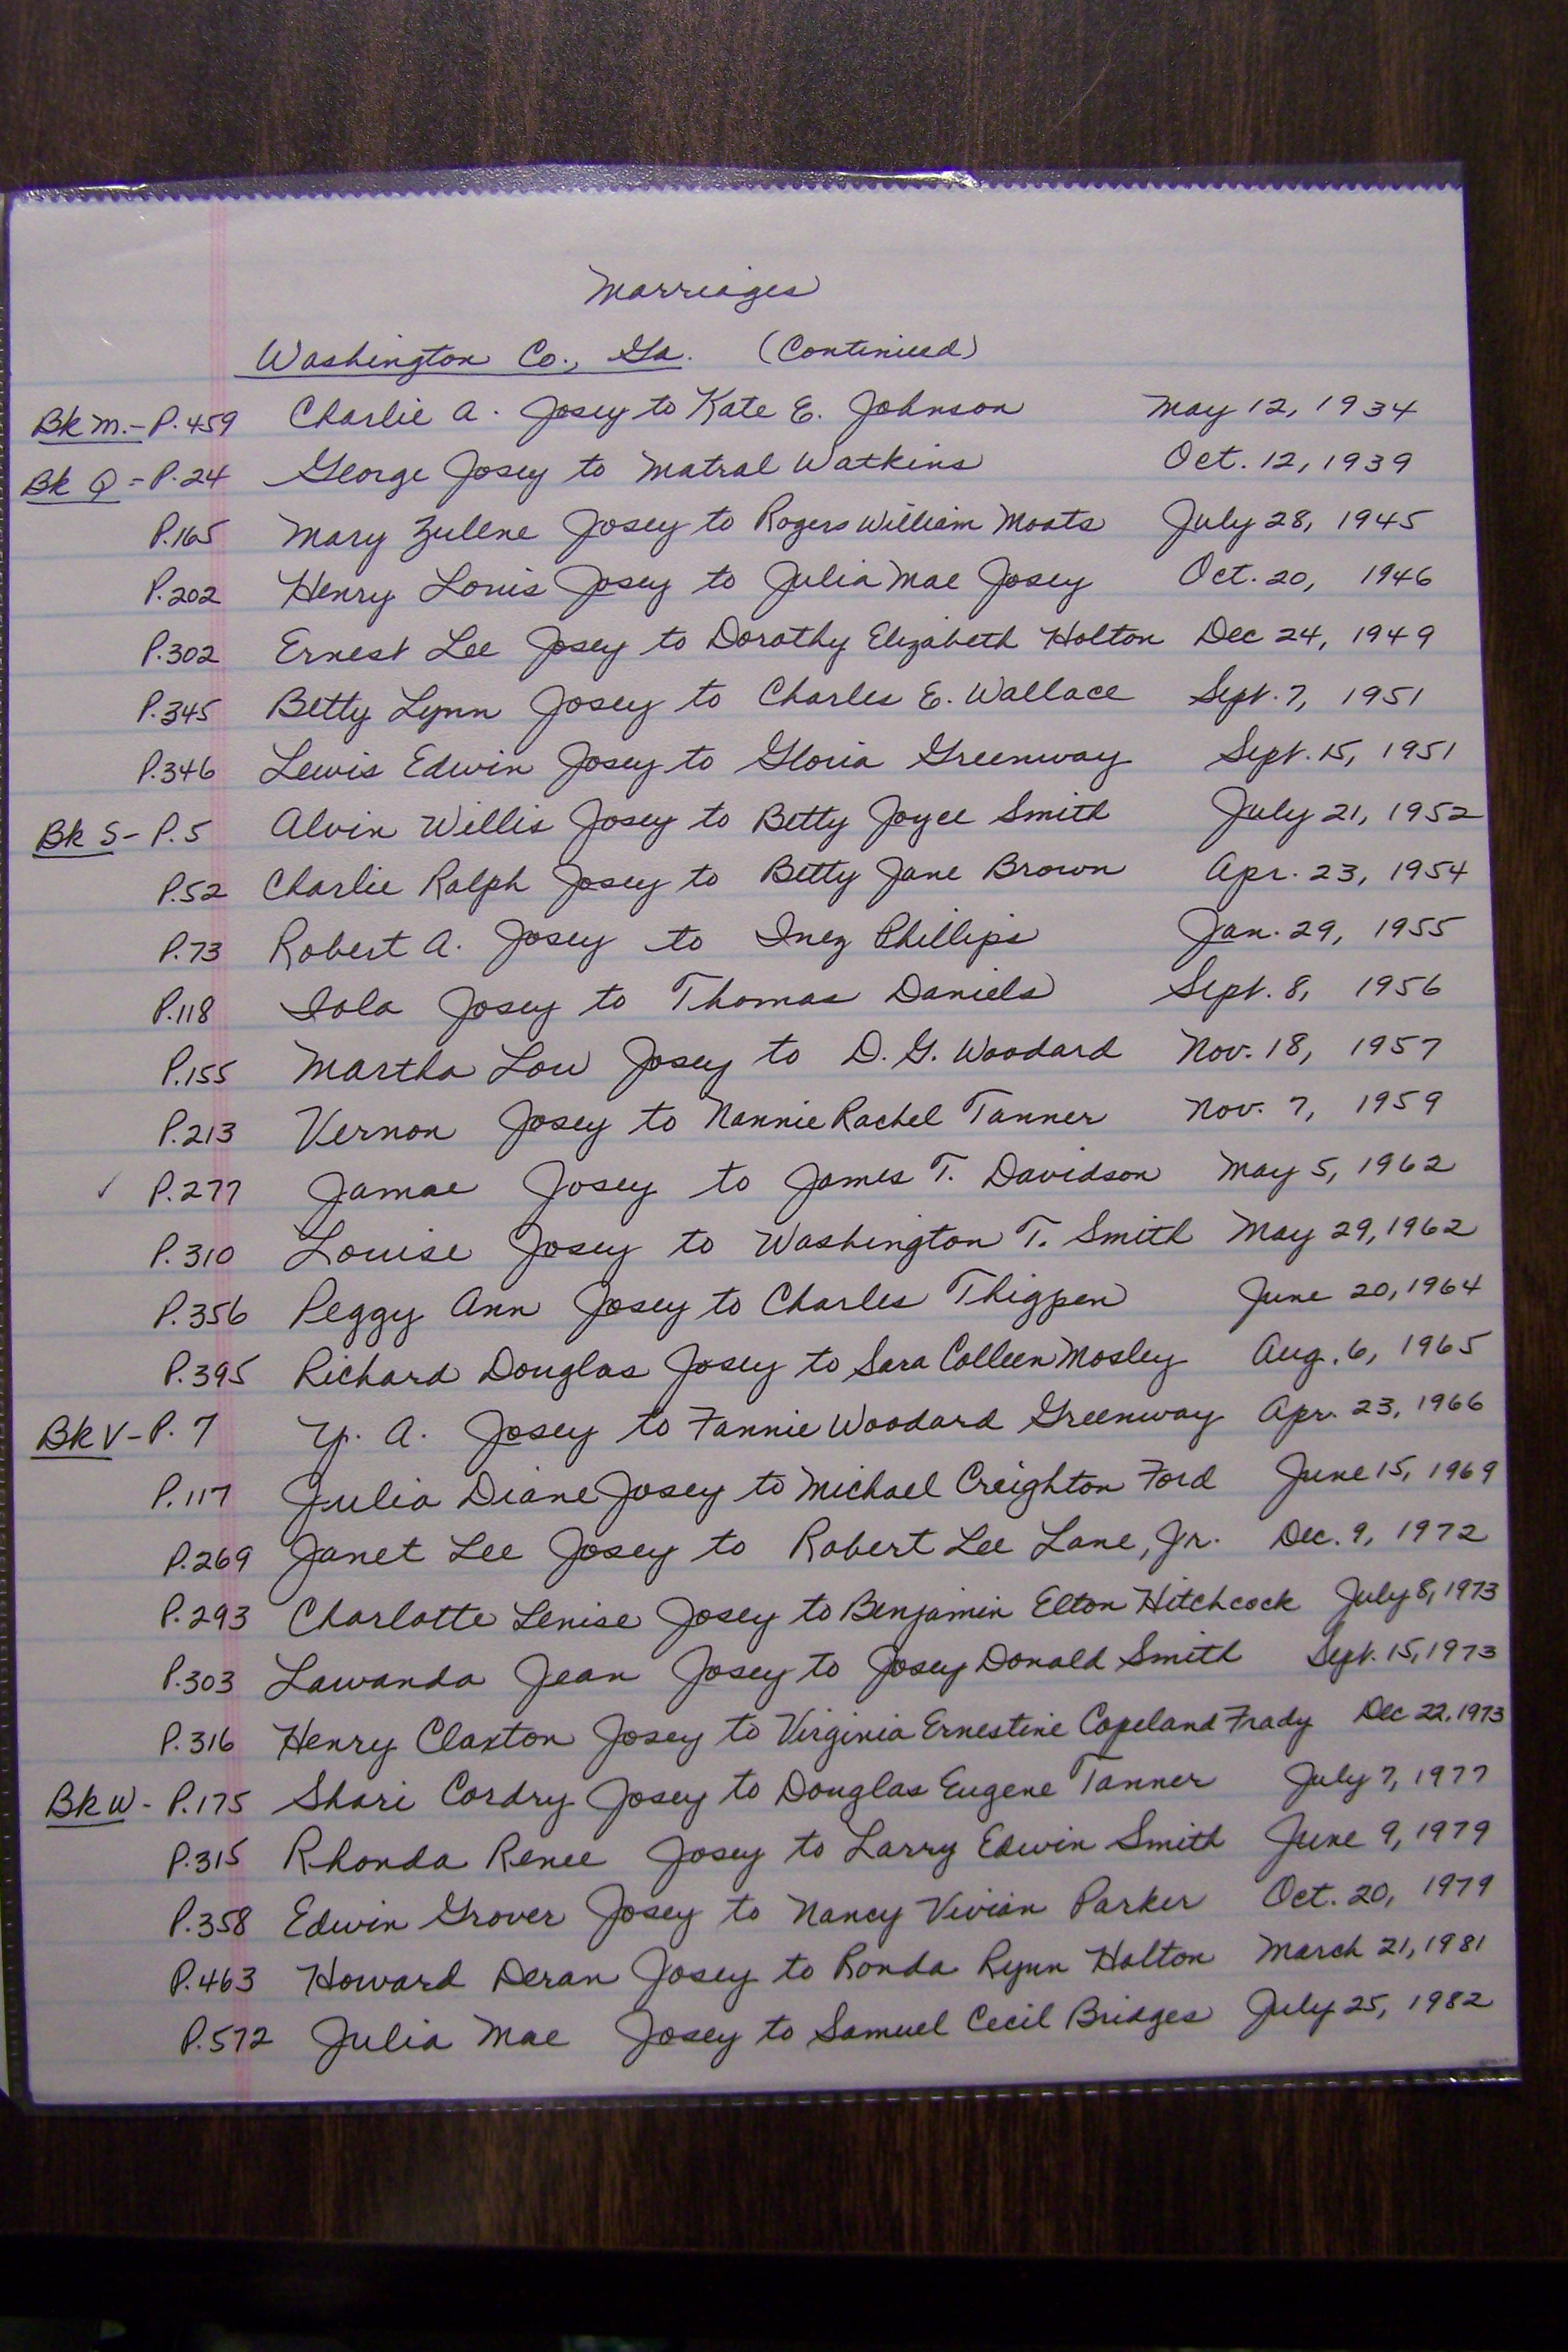 Marriages
Washington Co., Ga. (Continued)
Bk M.- P.459 Charlie A. Josey to Kate E. Johnson May 12, 1934
Bk Q - P.24 George Josey to Matral Watkins Oct. 12, 1939
P.165 Mary Zulene Josey to Rogers William Moats July 28, 1945
P.202 Henry Louis Josey to Julia Mae Josey Oct. 20, 1946
P.302 Ernest Lee Josey to Dorothy Elizabeth Holton Dec 24, 1949
P.345 Betty Lynn Josey to Charles E. Wallace Sept. 7, 1951
P.346 Lewis Edwin Josey to Gloria Greenway Sept. 15, 1951
Bk S - P.5 Alvin Willis Josey to Betty Joyce Smith July 21, 1952
P.52 Charlie Ralph Josey to Betty Jane Brown Apr. 23, 1954
P.73 Robert A. Josey to Inez Phillips Jan. 29, 1955
P.118 Iola Josey to Thomas Daniels Sept. 8, 1956
P.155 Martha Lou Josey to D. G. Woodard Nov. 18, 1957
P.213 Vernon Josey to Nannie Rachel Tanner Nov. 7, 1959
✓ P.277 Jamae Josey to James T. Davidson May 5, 1962
P.310 Louise Josey to Washington T. Smith May 29, 1962
P.356 Peggy Ann Josey to Charles Thigpen June 20, 1964
P.395 Richard Douglas Josey to Sara Colleen Mosley Aug. 6, 1965
Bk V - P. 7 Y. A. Josey to Fannie Woodard Greenway Apr. 23, 1966
P.117 Julia Diane Josey to Michael Creighton Ford June 15, 1969
P.269 Janet Lee Josey to Robert Lee Lane, Jr. Dec. 9, 1972
P.293 Charlotte Lenise Josey to Benjamin Elton Hitchcock July 8, 1973
P.303 Lawanda Jean Josey to Josey Donald Smith Sept. 15, 1973
P.316 Henry Claxton Josey to Virginia Ernestine Copeland Frady Dec 22, 1973
Bk W - P.175 Shari Cordry Josey to Douglas Eugene Tanner July 7, 1977
P.315 Rhonda Renee Josey to Larry Edwin Smith June 9, 1979
P.358 Edwin Grover Josey to Nancy Vivian Parker Oct. 20, 1979
P.463 Howard Deran Josey to Ronda Rynn Holton March 21, 1981
P.572 Julia Mae Josey to Samuel Cecil Bridges July 25, 1982